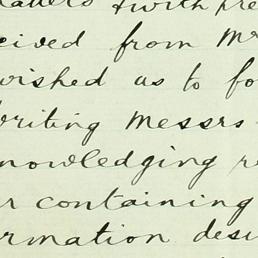 with pre
ceived from Mr
wished as to fo
writing Messrs
nowledging re
r containing
rmation desi